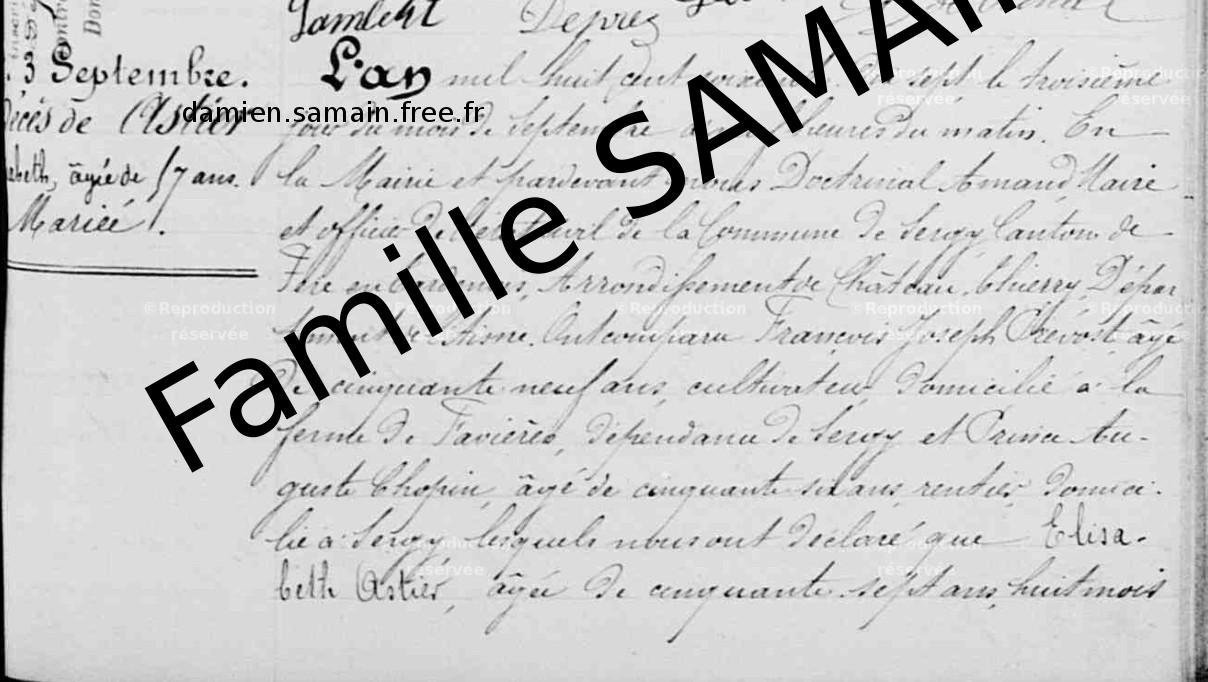 Lambert Deprez
3 Septembre.
décès de Astier
abeth, âgée de 57 ans.
Mariée.
L'an mil huit cent soixante dix sept le troisième
jour du mois de Septembre à heures du matin. En
la Mairie et pardevant nous Doctrinal Amand Maire
et officier de l'état civil de la Commune de Sergy Canton de
Fère en Tardenois, Arrondissement de Château-Thierry, Dépar
tement de l'Aisne. Ont comparu François Joseph Prévost âgé
de cinquante neuf ans, cultivateur, domicilié à la
ferme de Favières, dépendance de Sergy et Prince Au-
guste Chopin, âgé de cinquante six ans, rentier domici-
lié à Sergy lesquels nous ont déclaré que Elisa-
beth Astier, âgée de cinquante-sept ans, huit mois
damien.samain.free.fr
Famille SAMAIN
© Reproduction
réservée
© Reproduction
réservée
© Reproduction
réservée